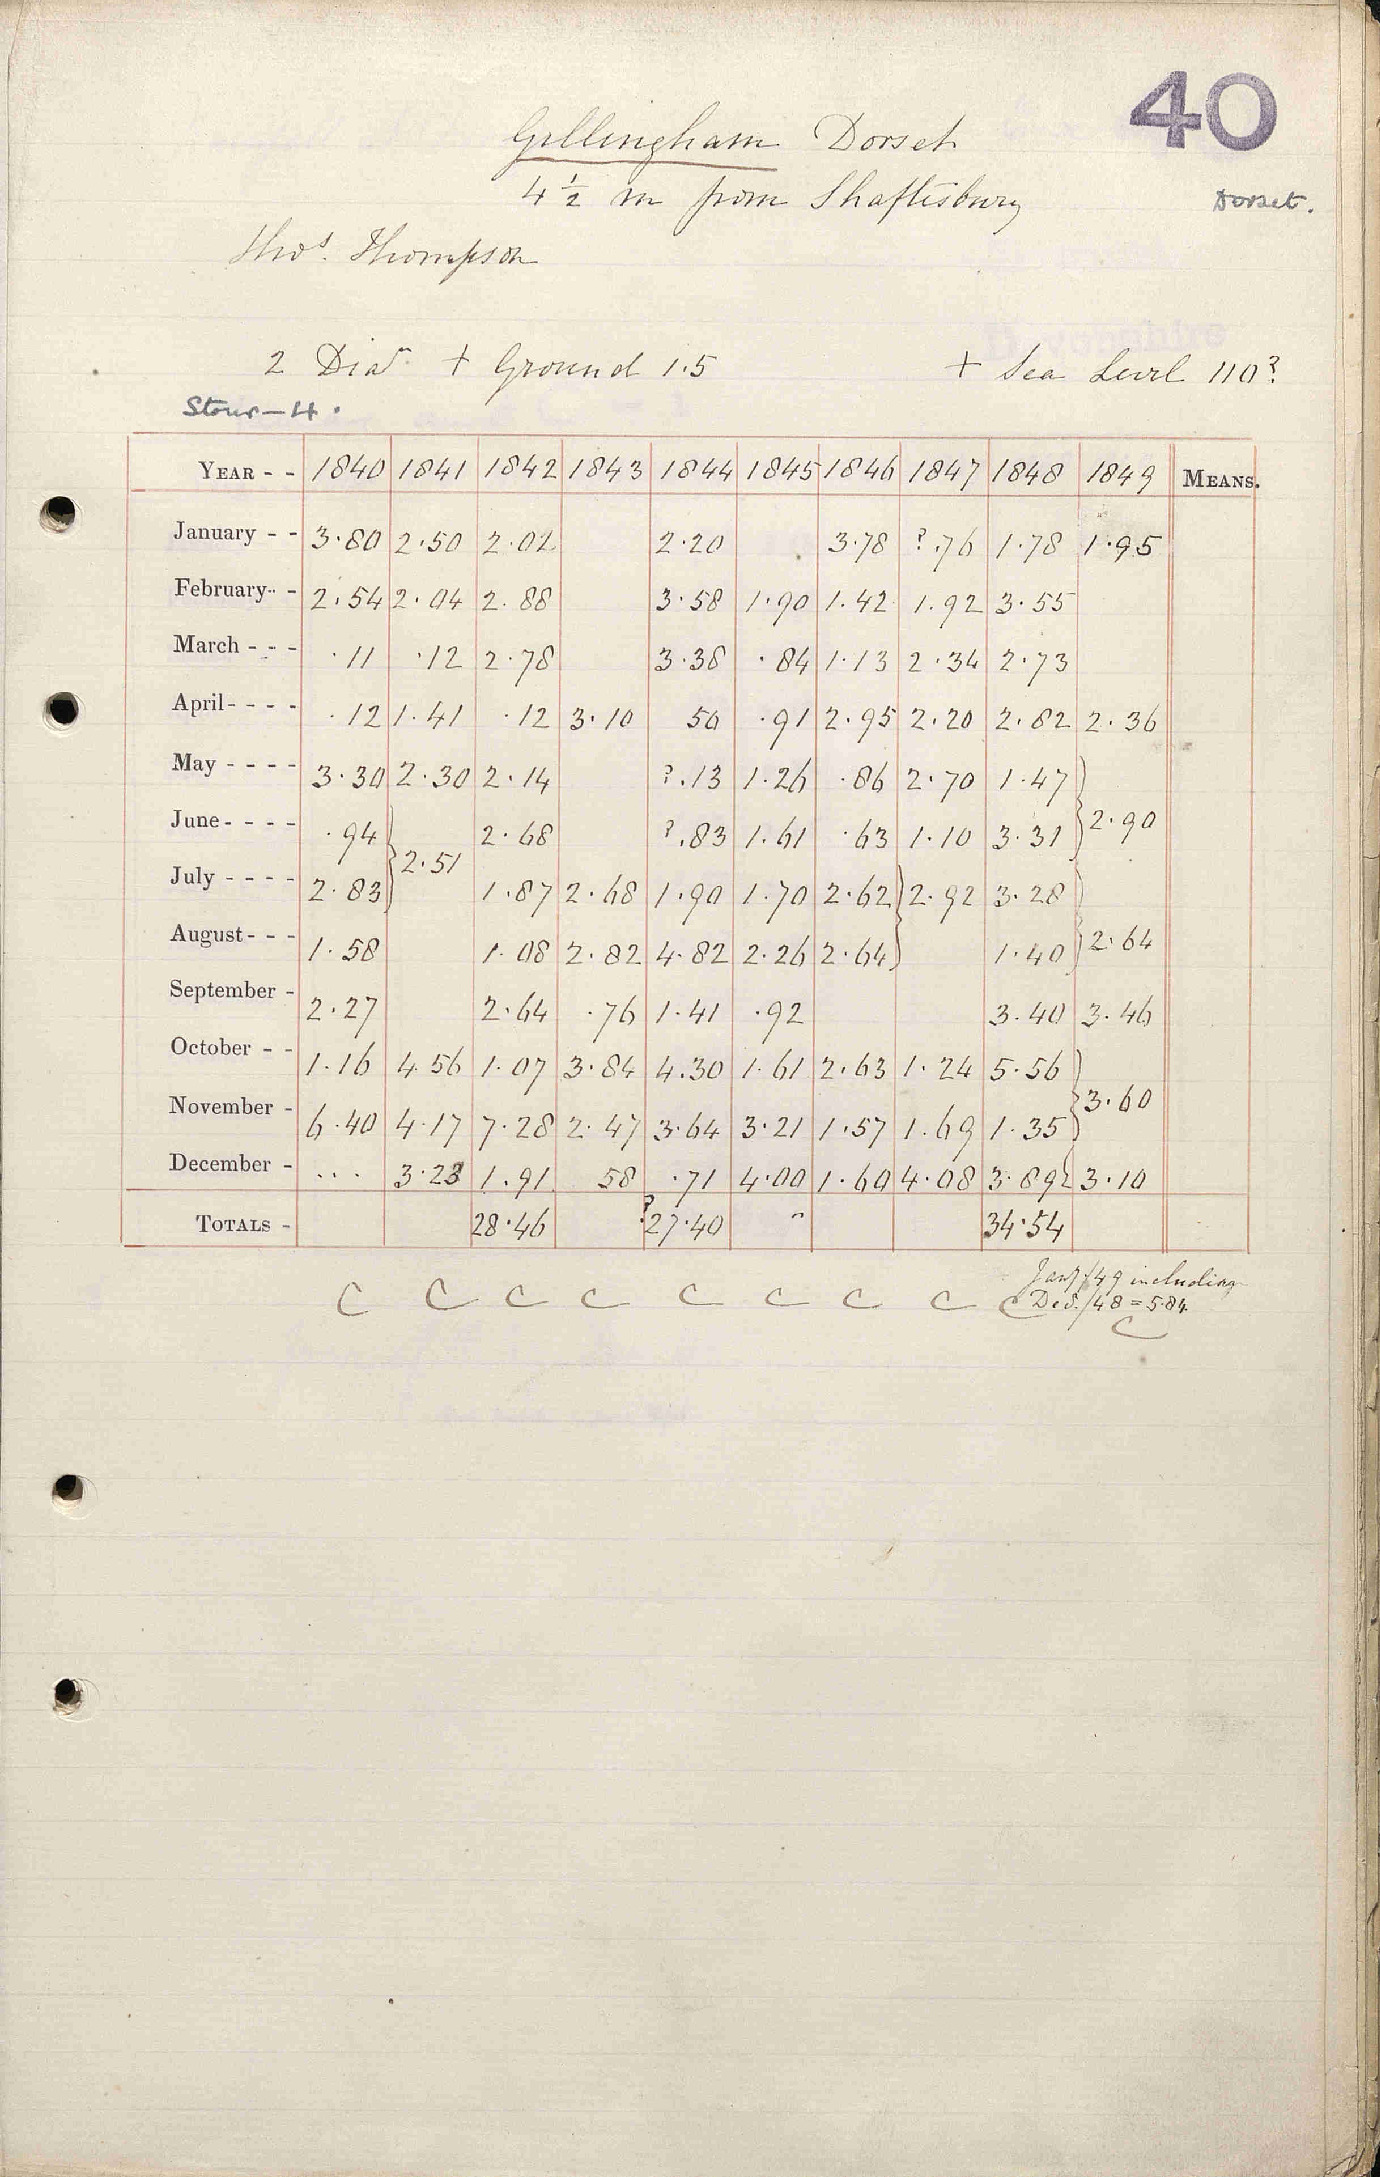 40
Gillingham Dorset
4 1/2 m from Shaftesbury
Dorset.
Thos. Thompson
2 Diar + Ground 1.5 + Sea Level 110?
Stour—4.
YEAR - - 1840 1841 1842 1843 1844 1845 1846 1847 1848 1849 MEANS.
January - - 3.80 2.50 2.02 2.20 3.78 ?.76 1.78 1.95
February - - 2.54 2.04 2.88 3.58 1.90 1.42 1.92 3.55
March - - - .11 .12 2.78 3.38 .84 1.13 2.34 2.73
April - - - - .12 1.41 .12 3.10 50 .91 2.95 2.20 2.82 2.36
May - - - - 3.30 2.30 2.14 ?.13 1.26 .86 2.70 1.47
June - - - - .94 2.68 ?.83 1.61 .63 1.10 3.31 } 2.90
July - - - - 2.83 } 2.51 1.87 2.68 1.90 1.70 2.62 } 2.92 3.28
August - - - 1.58 1.08 2.82 4.82 2.26 2.64 1.40 } 2.64
September - 2.27 2.64 .76 1.41 .92 3.40 3.46
October - - 1.16 4.56 1.07 3.84 4.30 1.61 2.63 1.24 5.56
November - 6.40 4.17 7.28 2.47 3.64 3.21 1.57 1.69 1.35 } 3.60
December - ... 3.23 1.91 58 .71 4.00 1.60 4.08 3.89 { 3.10
TOTALS - 28.46 ?27.40 " 34.54
Jany/49 including
Dec./48 = 5.84
C C C C C C C C C C